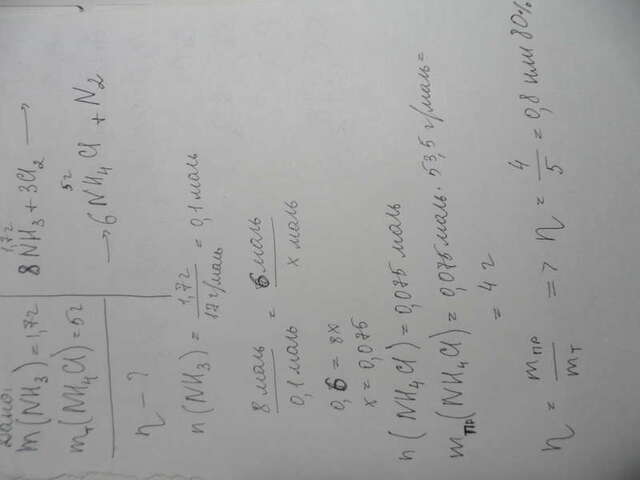 Дано:
m(NH₃)=1,7г
mт(NH₄Cl)=5г
η-?
1,7г
8NH₃ + 3Cl₂ →
5г
→6NH₄Cl + N₂
n(NH₃) = 1,7г / 17г/моль = 0,1моль
8 моль / 0,1 моль = 6моль / x моль
0,6 = 8x
x = 0,075
n(NH₄Cl) = 0,075 моль
mпр(NH₄Cl) = 0,075моль · 53,5 г/моль =
= 4 г
η = mпр / mт => η = 4 / 5 = 0,8 или 80%